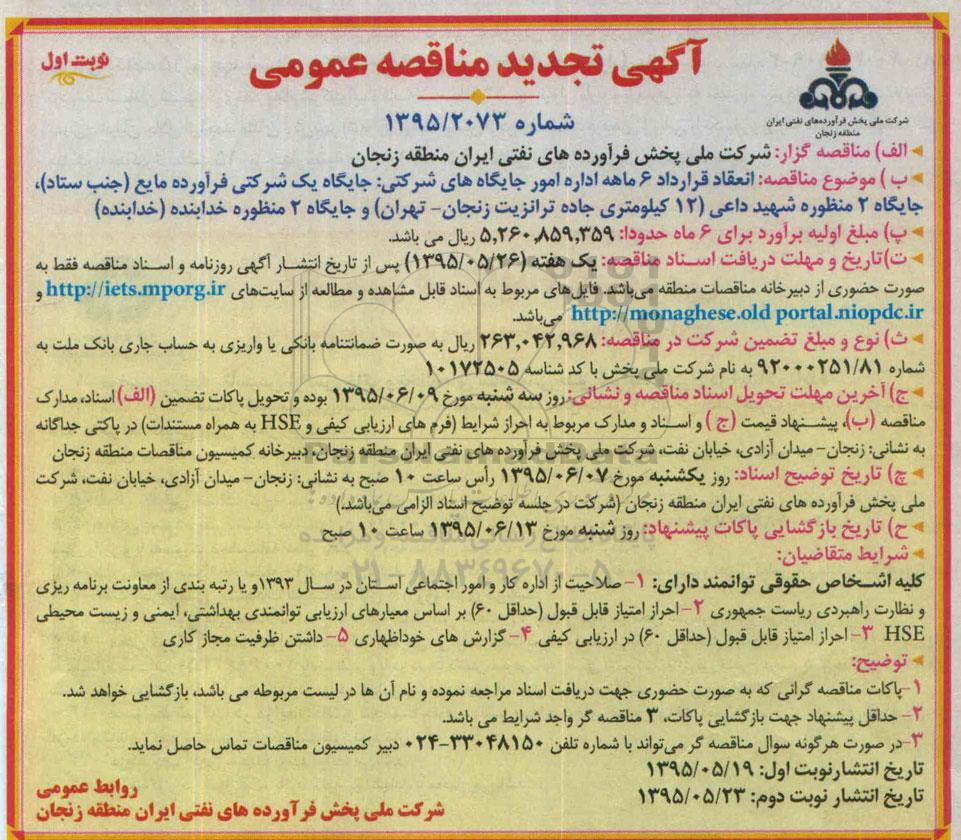 آگهی تجدید مناقصه عمومی
نوبت اول
شرکت ملی پخش فرآورده‌های نفتی ایران
منطقه زنجان
شماره ۱۳۹۵/۲۰۷۳
الف) مناقصه گزار: شرکت ملی پخش فرآورده های نفتی ایران منطقه زنجان
ب ) موضوع مناقصه: انعقاد قرارداد ۶ ماهه اداره امور جایگاه های شرکتی: جایگاه یک شرکتی فرآورده مایع (جنب ستاد)،
جایگاه ۲ منظوره شهید داعی (۱۲ کیلومتری جاده ترانزیت زنجان- تهران) و جایگاه ۲ منظوره خدابنده (خدابنده)
پ) مبلغ اولیه برآورد برای ۶ ماه حدودا: ۵,۲۶۰,۸۵۹,۳۵۹ ریال می باشد.
ت)تاریخ و مهلت دریافت اسناد مناقصه: یک هفته (۱۳۹۵/۰۵/۲۶) پس از تاریخ انتشار آگهی روزنامه و اسناد مناقصه فقط به
صورت حضوری از دبیرخانه مناقصات منطقه می‌باشد. فایل‌های مربوط به اسناد قابل مشاهده و مطالعه از سایت‌های http://iets.mporg.ir و
http://monaghese.old portal.niopdc.ir می‌باشد.
ث) نوع و مبلغ تضمین شرکت در مناقصه: ۲۶۳,۰۴۲,۹۶۸ ریال به صورت ضمانتنامه بانکی یا واریزی به حساب جاری بانک ملت به
شماره ۹۲۰۰۰۲۵۱/۸۱ به نام شرکت ملی پخش با کد شناسه ۱۰۱۷۲۵۰۵
ج) آخرین مهلت تحویل اسناد مناقصه و نشانی: روز سه شنبه مورخ ۱۳۹۵/۰۶/۰۹ بوده و تحویل پاکات تضمین (الف) اسناد، مدارک
مناقصه (ب)، پیشنهاد قیمت (ج ) و اسناد و مدارک مربوط به احراز شرایط (فرم های ارزیابی کیفی و HSE به همراه مستندات) در پاکتی جداگانه
به نشانی: زنجان- میدان آزادی، خیابان نفت، شرکت ملی پخش فرآورده های نفتی ایران منطقه زنجان، دبیرخانه کمیسیون مناقصات منطقه زنجان
چ) تاریخ توضیح اسناد: روز یکشنبه مورخ ۱۳۹۵/۰۶/۰۷ رأس ساعت ۱۰ صبح به نشانی: زنجان- میدان آزادی، خیابان نفت، شرکت
ملی پخش فرآورده های نفتی ایران منطقه زنجان (شرکت در جلسه توضیح اسناد الزامی می‌باشد.)
ح) تاریخ بازگشایی پاکات پیشنهاد: روز شنبه مورخ ۱۳۹۵/۰۶/۱۳ ساعت ۱۰ صبح
شرایط متقاضیان:
کلیه اشخاص حقوقی توانمند دارای: ۱- صلاحیت از اداره کار و امور اجتماعی استان در سال ۱۳۹۳و یا رتبه بندی از معاونت برنامه ریزی
و نظارت راهبردی ریاست جمهوری ۲-احراز امتیاز قابل قبول (حداقل ۶۰) بر اساس معیارهای ارزیابی توانمندی بهداشتی، ایمنی و زیست محیطی
HSE ۳- احراز امتیاز قابل قبول (حداقل ۶۰) در ارزیابی کیفی ۴- گزارش های خوداظهاری ۵- داشتن ظرفیت مجاز کاری
توضیح:
۱-پاکات مناقصه گرانی که به صورت حضوری جهت دریافت اسناد مراجعه نموده و نام آن ها در لیست مربوطه می باشد، بازگشایی خواهد شد.
۲- حداقل پیشنهاد جهت بازگشایی پاکات، ۳ مناقصه گر واجد شرایط می باشد.
۳-در صورت هرگونه سوال مناقصه گر می‌تواند با شماره تلفن ۳۳۰۴۸۱۵۰-۰۲۴ دبیر کمیسیون مناقصات تماس حاصل نماید.
تاریخ انتشارنوبت اول: ۱۳۹۵/۰۵/۱۹
تاریخ انتشار نوبت دوم: ۱۳۹۵/۰۵/۲۳
روابط عمومی
شرکت ملی پخش فرآورده های نفتی ایران منطقه زنجان